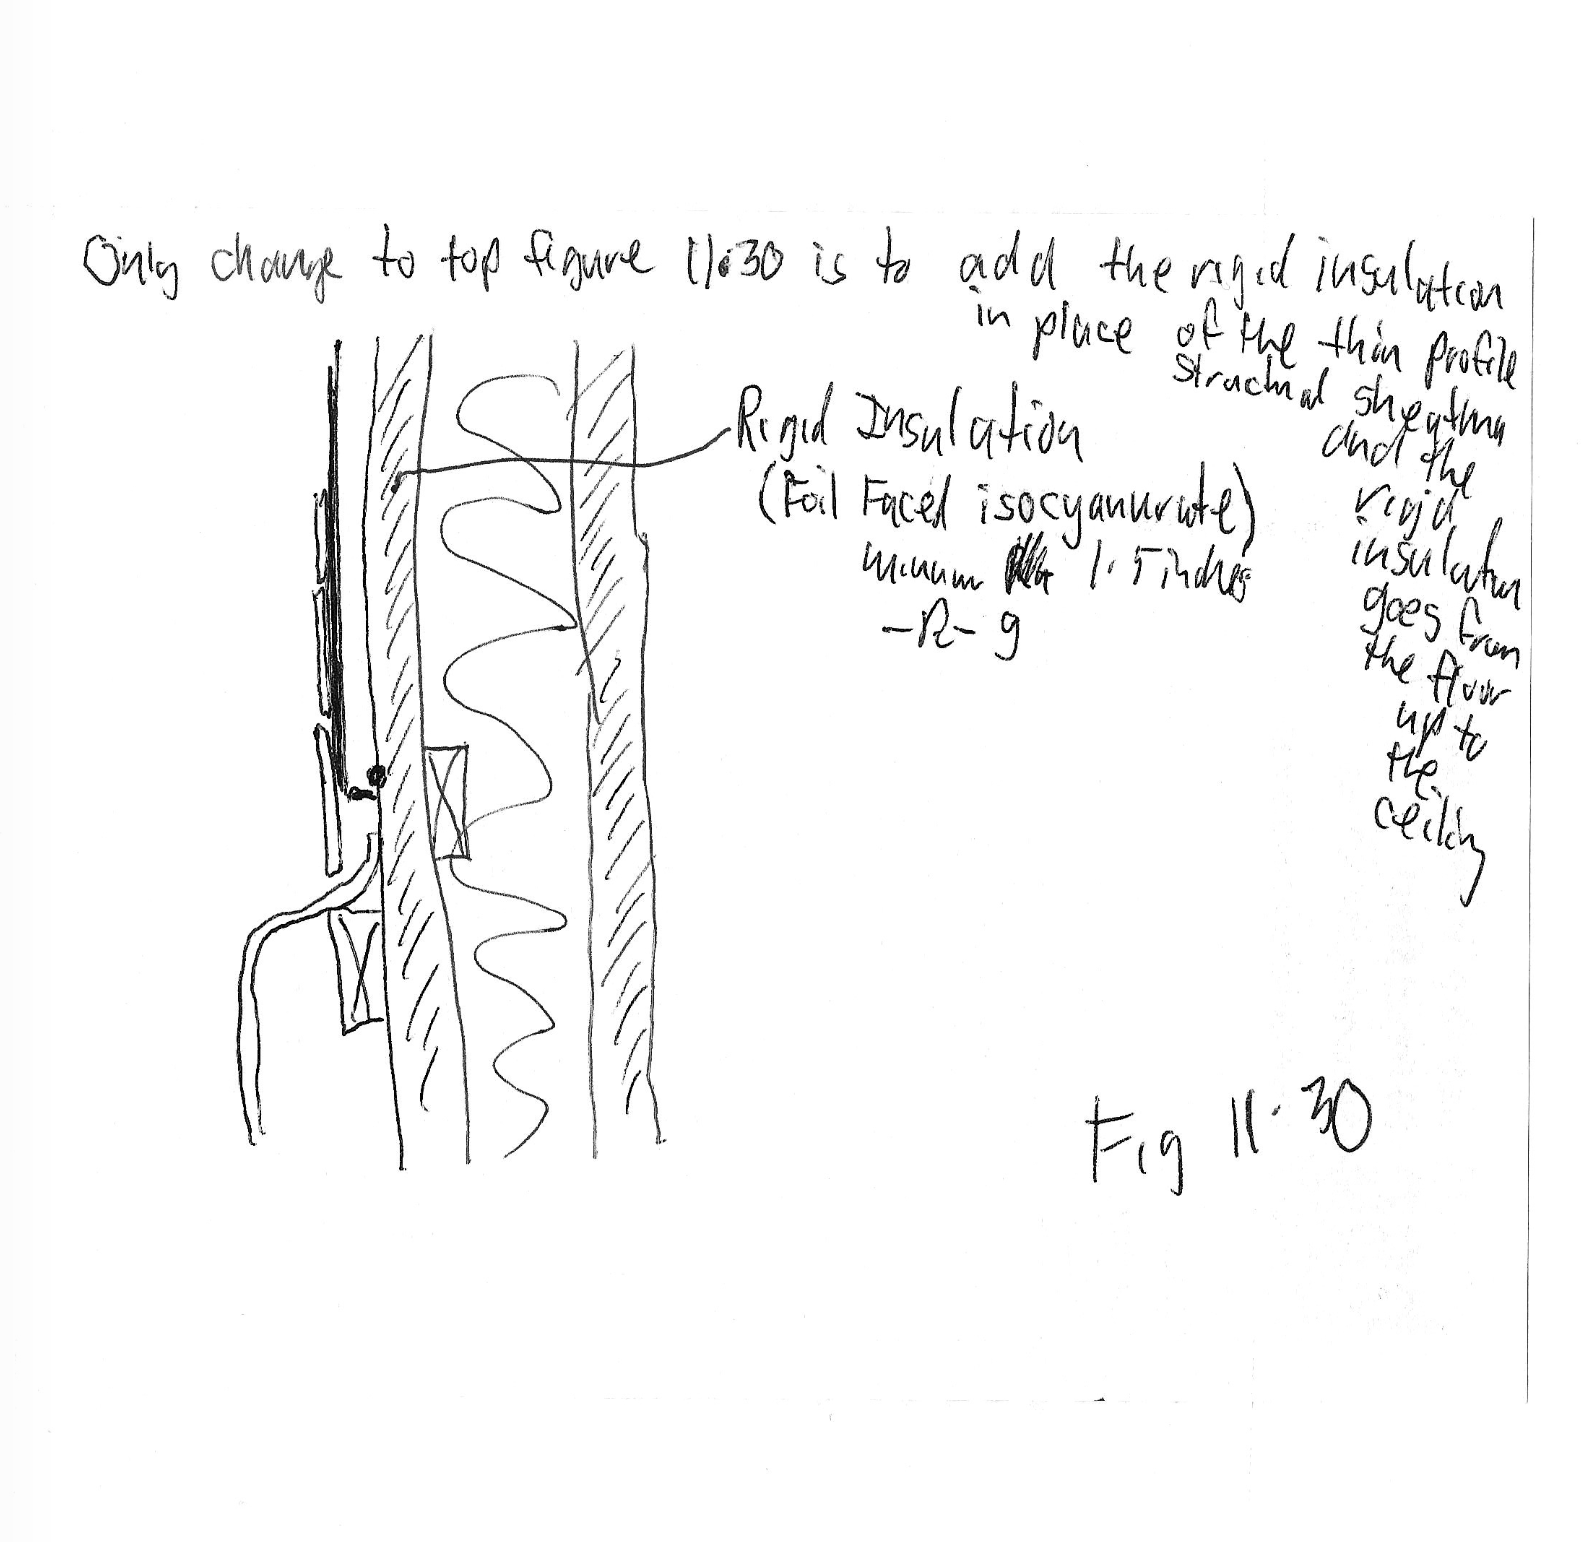 Only change to top figure 11.30 is to add the rigid insulation
in place of the thin profile
structural sheathing
and the
rigid
insulation
goes from
the floor
up to
the
ceiling
Rigid Insulation
(Foil Faced isocyanurate)
minimum 1.5 inches
-R-9
Fig 11.30